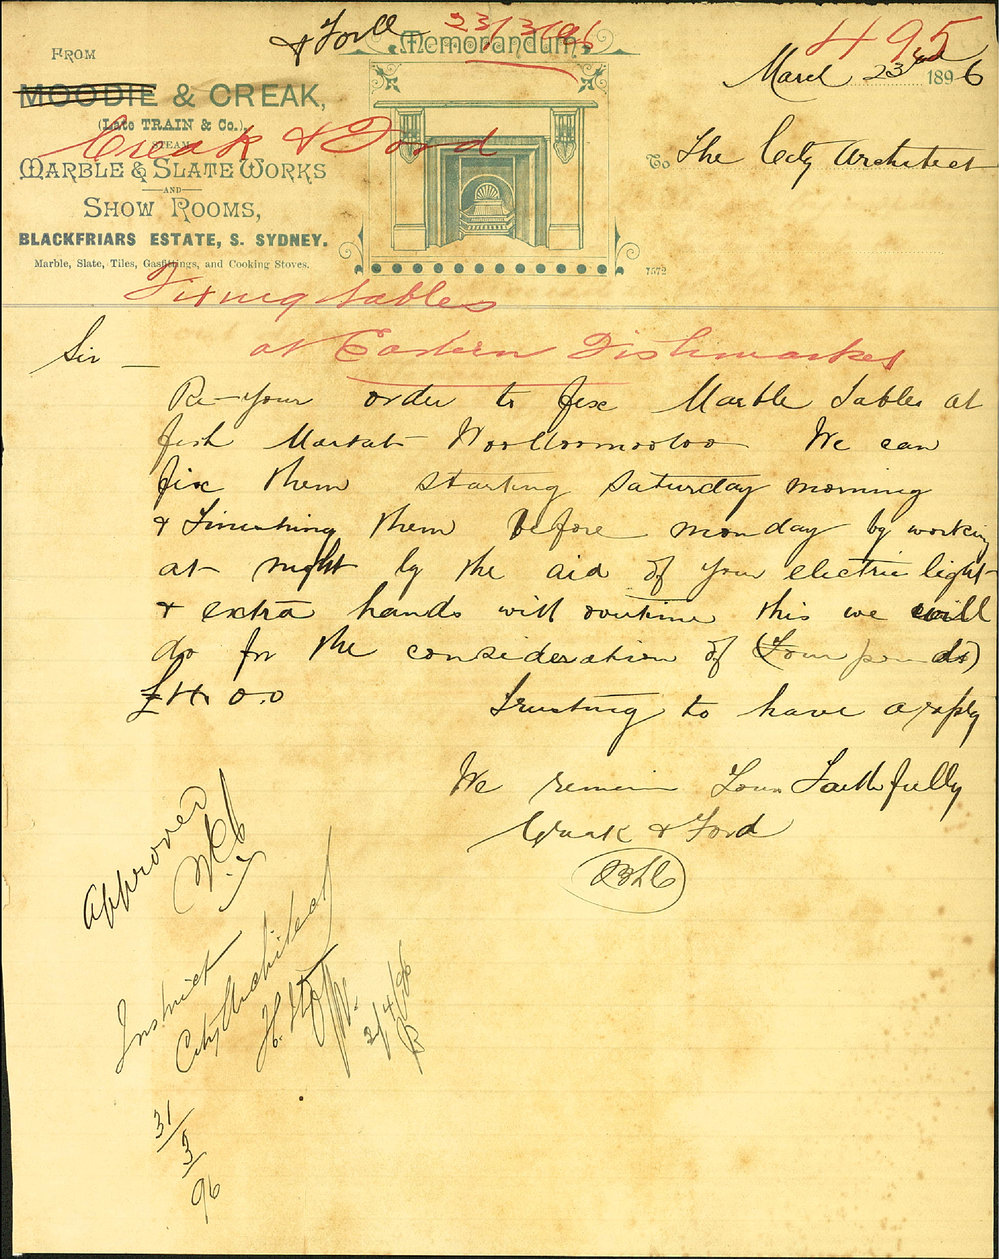 & Ford
23/3/96
495
Memorandum.
FROM
March 23rd 1896
MOODIE & CREAK,
(Late TRAIN & Co.),
STEAM
Creak & Ford
MARBLE & SLATE WORKS
AND
SHOW ROOMS,
BLACKFRIARS ESTATE, S. SYDNEY.
Marble, Slate, Tiles, Gasfittings, and Cooking Stoves.
To The City Architect
7572
Fixing tables
at Eastern Fishmarket
Sir —
Re-your order to fix Marble Tables at
fish Market Woolloomooloo We can
fix them starting Saturday morning
& Finishing them before monday by working
at night by the aid of your electric light
& extra hands with overtime this we will
do for the consideration of (Four pounds)
£4.0.0 Trusting to have a reply
We remain Yours Faithfully
Creak & Ford
Approved
Instruct
City Architect
2/4/96
31/3/96